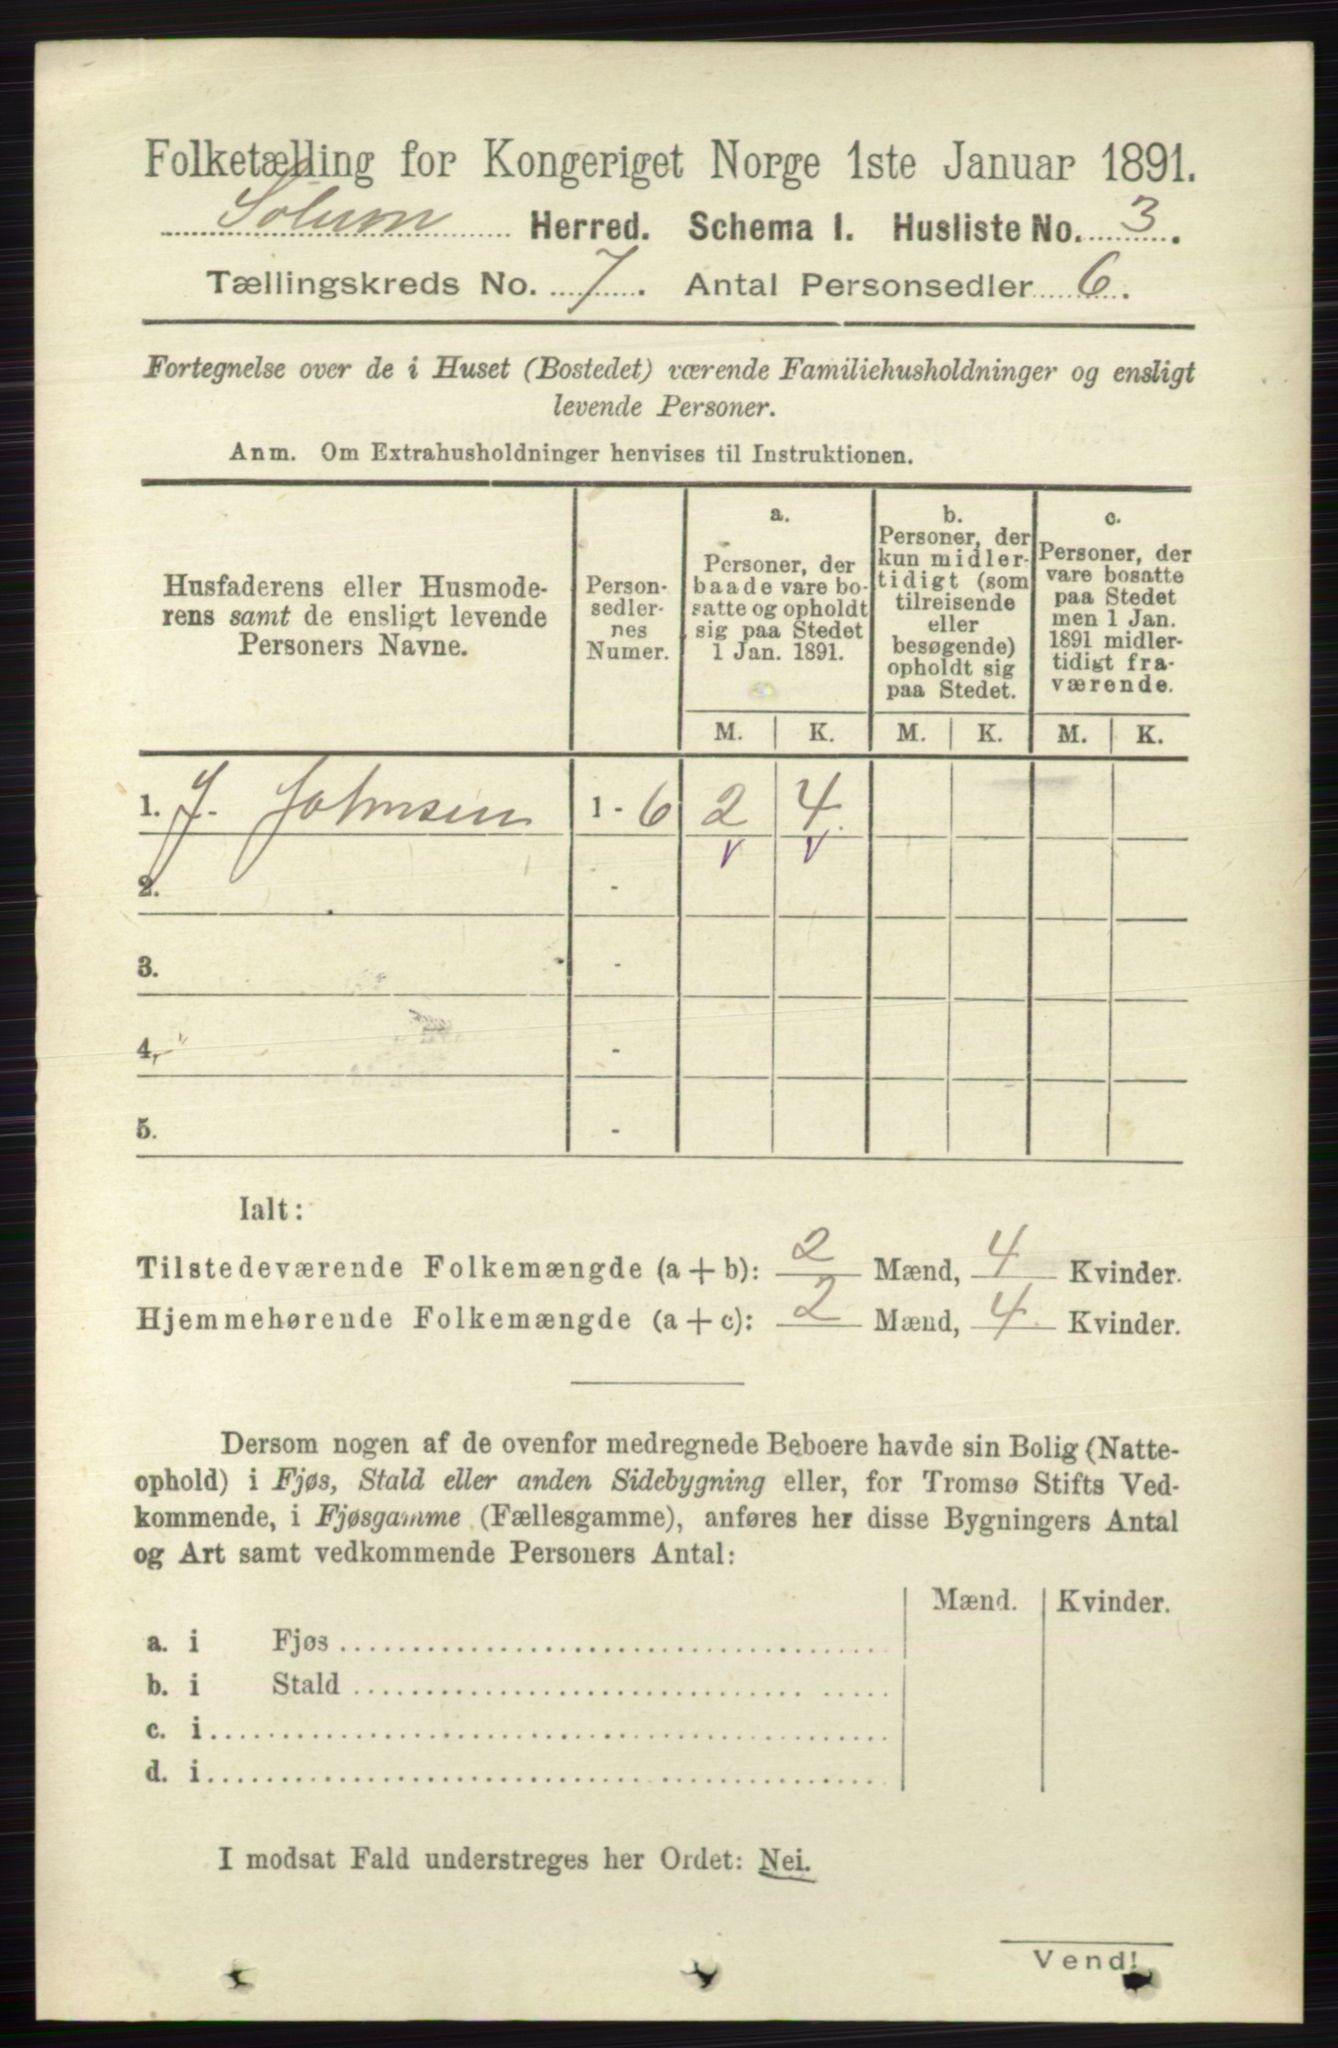 Folketælling for Kongeriget Norge 1ste Januar 1891.
Solum Herred. Schema 1. Husliste No. 3.
Tællingskreds No. 7. Antal Personsedler 6.
Fortegnelse over de i Huset (Bostedet) værende Familiehusholdninger og ensligt
levende Personer.
Anm. Om Extrahusholdninger henvises til Instruktionen.
Husfaderens eller Husmode-
rens samt de ensligt levende
Personers Navne.
Person-
sedler-
nes
Numer.
a.
Personer, der
baade vare bo-
satte og opholdt
sig paa Stedet
1 Jan. 1891.
b.
Personer, der
kun midler-
tidigt (som
tilreisende
eller
besøgende)
opholdt sig
paa Stedet.
c.
Personer, der
vare bosatte
paa Stedet
men 1 Jan.
1891 midler-
tidigt fra-
værende.
M. K. M. K. M. K.
1. J. Johnsen 1 - 6 2 4
2. -
3. -
4. -
5. -
Ialt:
Tilstedeværende Folkemængde (a + b): 2 Mænd, 4 Kvinder.
Hjemmehørende Folkemængde (a + c): 2 Mænd, 4 Kvinder.
Dersom nogen af de ovenfor medregnede Beboere havde sin Bolig (Natte-
ophold) i Fjøs, Stald eller anden Sidebygning eller, for Tromsø Stifts Ved-
kommende, i Fjøsgamme (Fællesgamme), anføres her disse Bygningers Antal
og Art samt vedkommende Personers Antal:
Mænd. Kvinder.
a. i Fjøs
b. i Stald
c. i
d. i
I modsat Fald understreges her Ordet: Nei.
Vend!